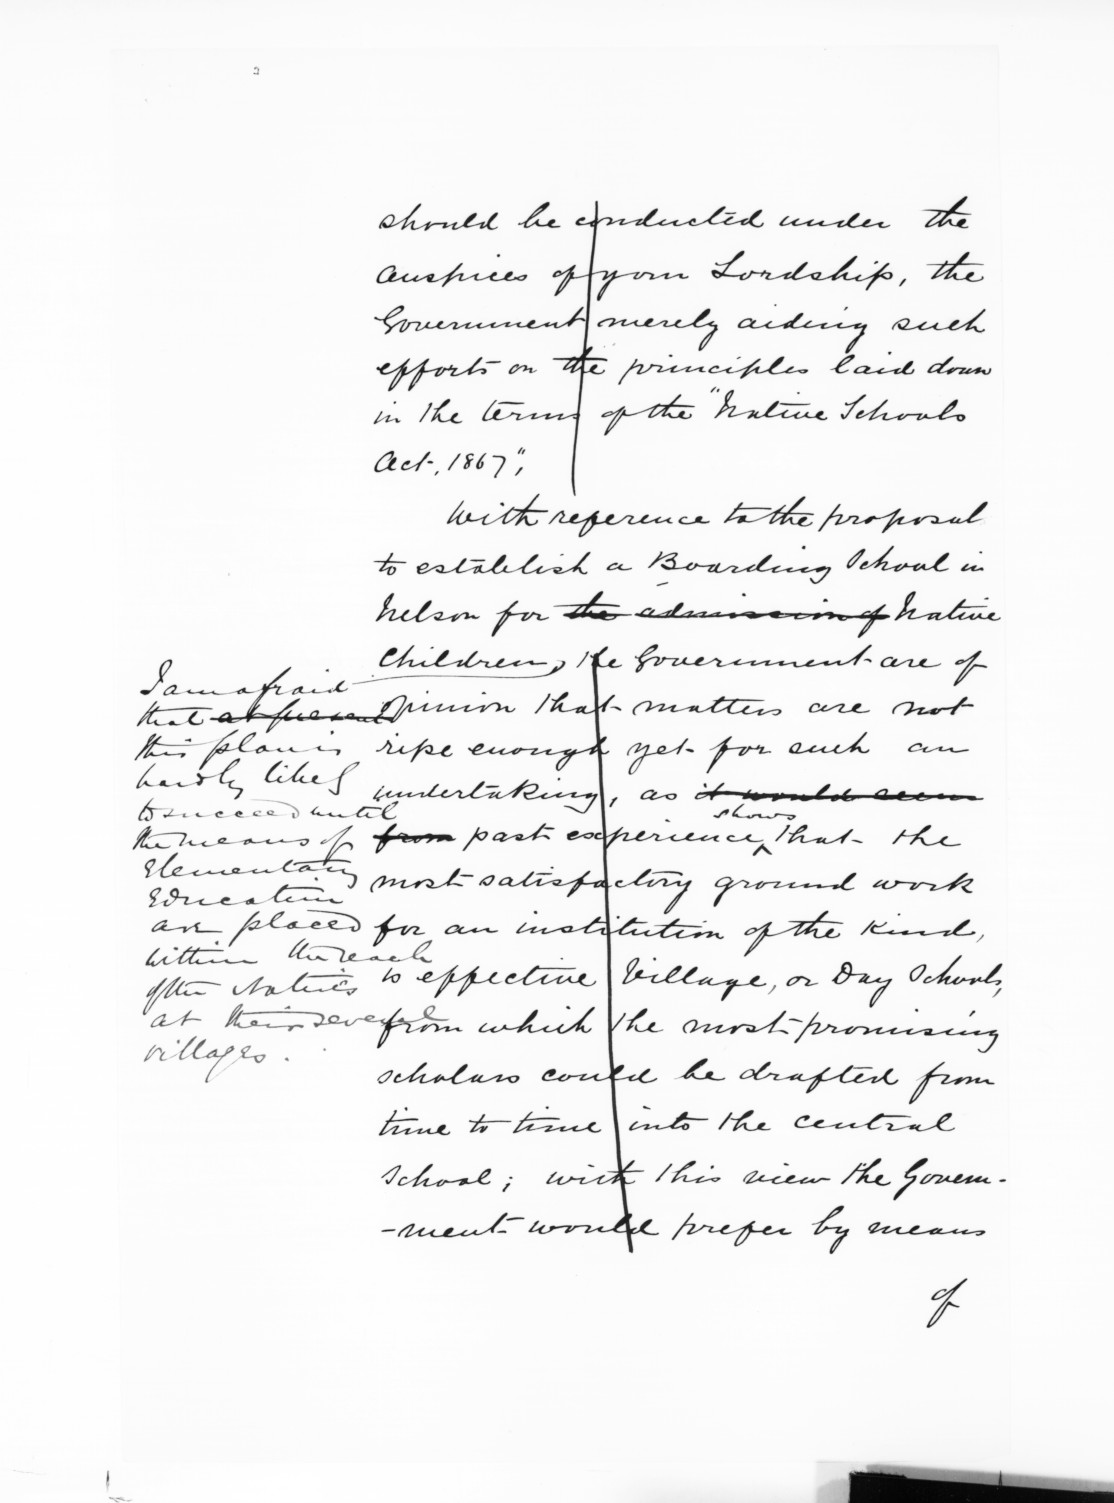 should be conducted under the
auspices of your Lordship, the
Government merely aiding such
efforts on the principles laid down
in the terms of the "Native Schools
Act, 1867",
With reference to the proposal
to establish a Boarding School in
Nelson for the admission of Native
Children, the Government are of
opinion that matters are not
ripe enough yet for such an
undertaking, as it would seem
shows
from past experience, that the
most satisfactory ground work
for an institution of the kind,
is effective Village, or Day Schools,
from which the most promising
scholars could be drafted from
time to time into the central
School; with this view the Govern-
-ment would prefer by means
of
I am afraid
that at present
this plan is
hardly likely
to succeed until
the means of
Elementary
Education
are placed
within the reach
of the Natives
at their several
villages.